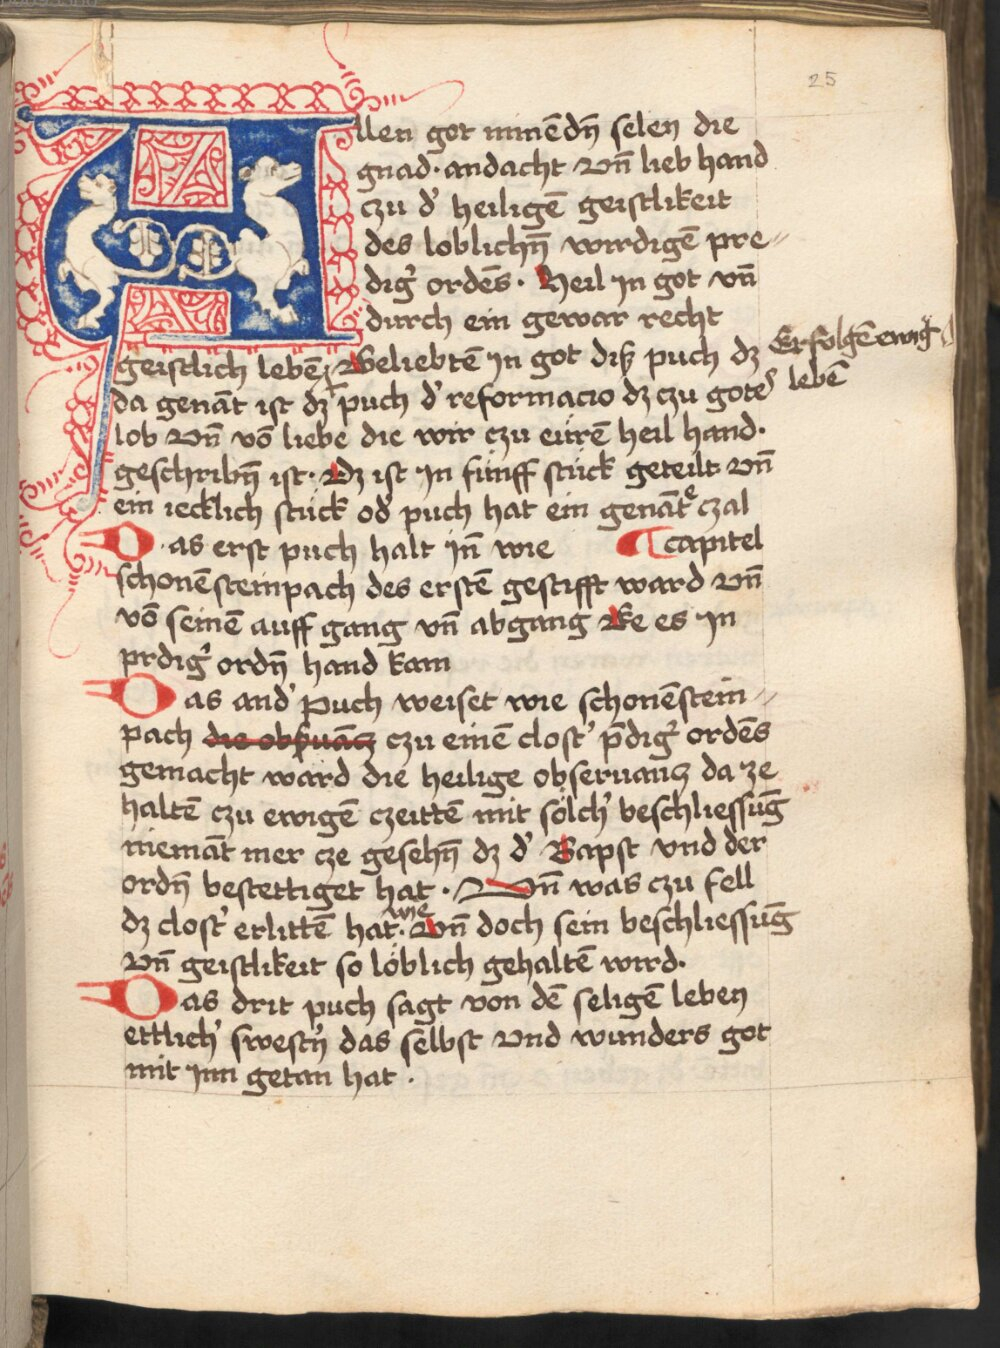 25
Allen got minēdn̄ selen die
gnad · andacht vn̄ lieb hand
czu d' heiligē geistlikeit
des loblichn̄ wirdigē pre〃
dig' ordēs · Heil in got vn̄
durch ein gewar recht
geistlich lebē Geliebtē in got diß puch dz
Erfolgē ewig
lebē
da genāt ist dz puch d' reformacio dz czu gotes
lob vn̄ vō liebe die wir czu eürē heil hand ·
geschribn̄ ist · Dz ist in fünff stück geteilt vn̄
ein iecklich stück od' puch hat ein genāte czal
Das erst puch halt in̄ wie ¶ capitel
schonēsteinpach des erstē gestifft ward vn̄
vō seinē auff gang vn̄ abgang Ee es in
prdig' ordn̄ hand kam
Das and' puch weiset wie schonēstein〃
pach die obs̄uācz czu einē clost' p̄dig' ordēs
gemacht ward die heilige obseruancz da ze
haltē czu ewigē czeittē mit sölch' beschliessūg
niemāt mer cze gesehn̄ dz d' Bapst vnd der
ordn̄ bestettiget hat · Vn̄ was czu fell
dz clost' erlittē hat · wie Vn̄ doch sein beschliessūg
vn̄ geistlikeit so löblich gehaltē wird ·
Das drit puch sagt von dē seligē leben
ettlich' swest'n das selbst vnd wunders got
mit inn getan hat ·